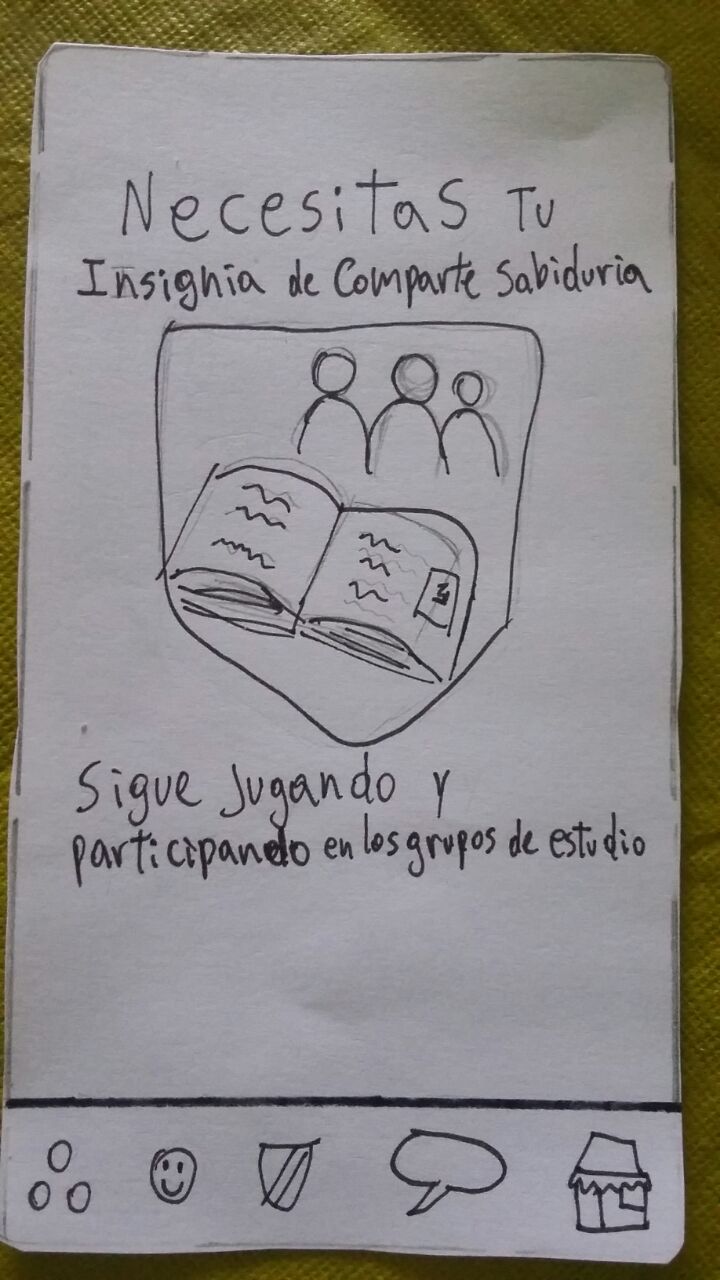 Necesitas Tu
Insignia de Comparte Sabiduria
Sigue Jugando y
participando en los grupos de estudio